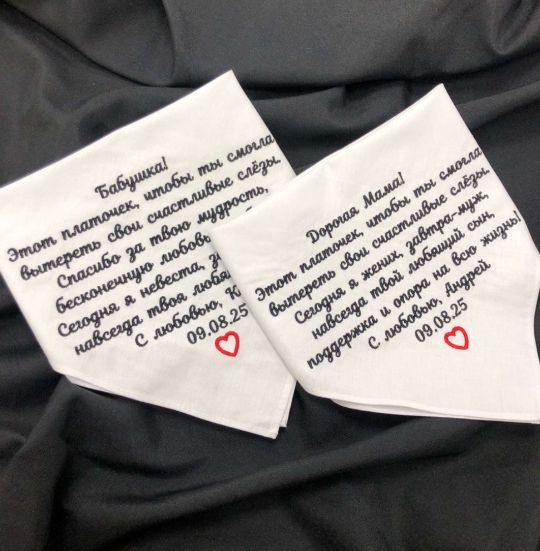 Бабушка!
Этот платочек, чтобы ты смогла
вытереть свои счастливые слёзы,
Спасибо за твою мудрость,
бесконечную
Сегодня я невеста,
навсегда твоя
С любовью,
09.08.25
Дорогая Мама!
Этот платочек, чтобы ты смогла
вытереть свои счастливые слёзы,
Сегодня я жених, завтра-муж,
навсегда твой любящий сын,
поддержка и опора на всю жизнь!
С любовью, Андрей
09.08.25